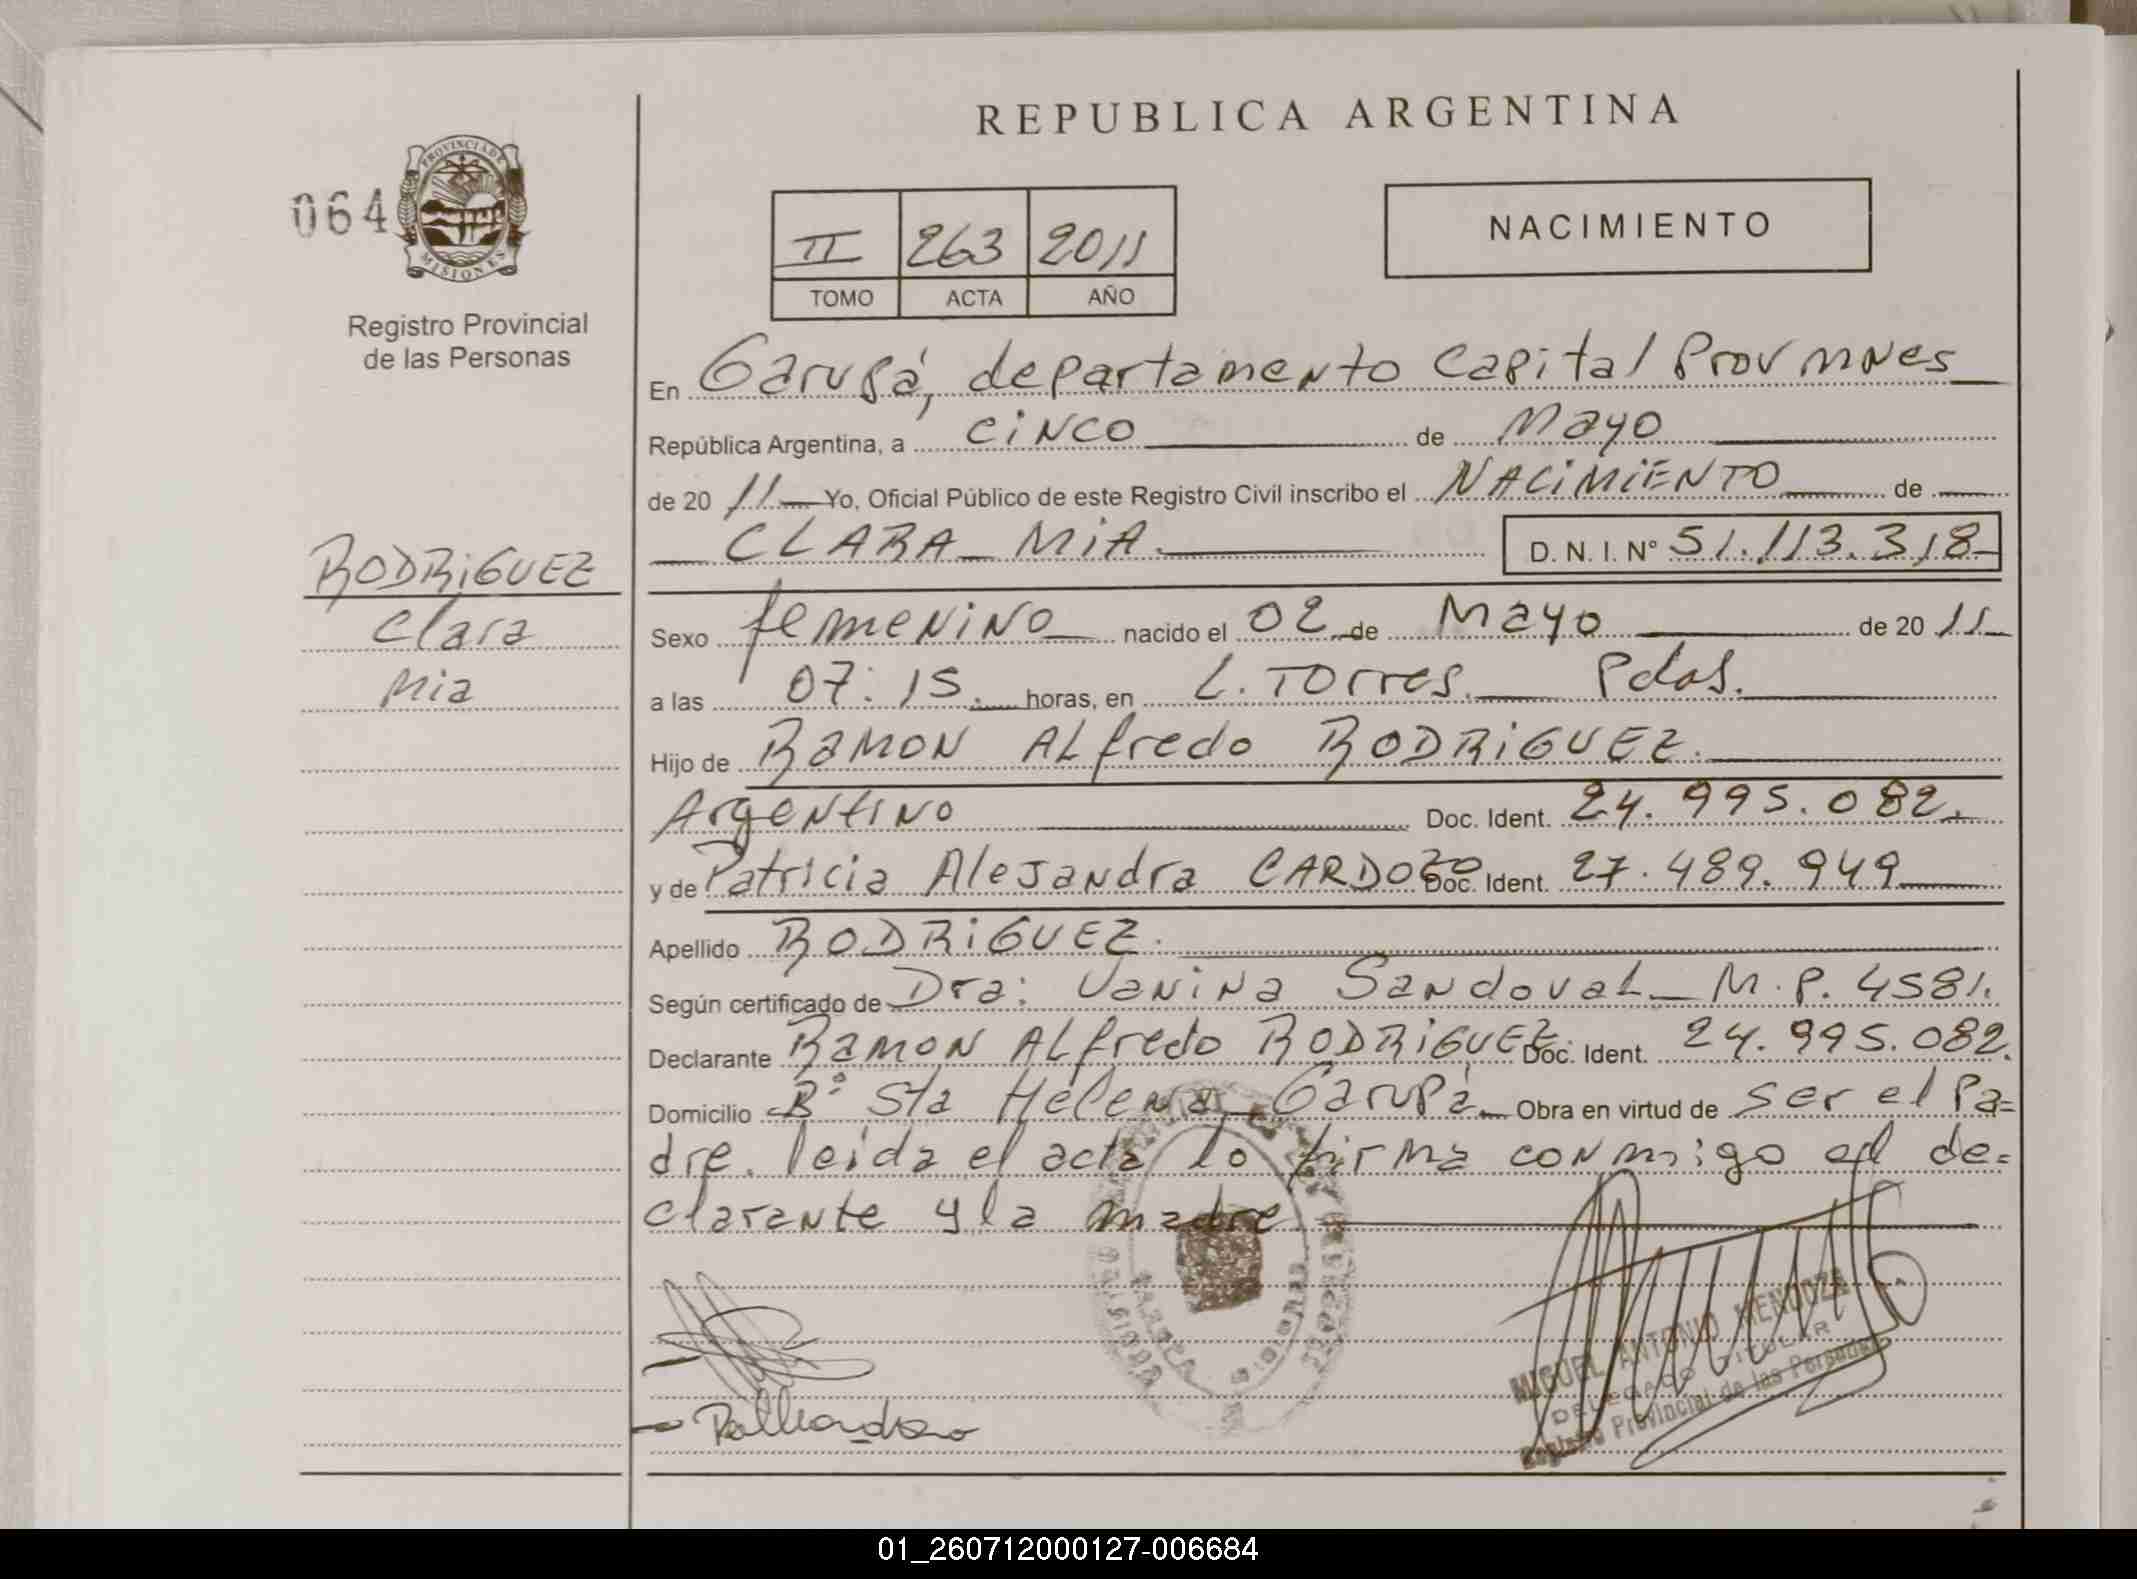 REPUBLICA ARGENTINA
064
PROVINCIA DE
MISIONES
Registro Provincial
de las Personas
II 263 2011
TOMO ACTA AÑO
NACIMIENTO
En Garupá, departamento Capital Prov mnes
República Argentina, a cinco de Mayo
de 20 11 Yo, Oficial Público de este Registro Civil inscribo el NACIMIENTO de
CLARA MIA. D. N. I. N° 51.113.318
RODRIGUEZ
Clara
Mia
Sexo femenino nacido el 02 de Mayo de 20 11
a las 07:15. horas, en L. Torres. Pdas.
Hijo de Ramon Alfredo RODRIGUEZ.
Argentino Doc. Ident. 24.995.082.
y de Patricia Alejandra CARDOZO Doc. Ident. 27.489.949
Apellido RODRIGUEZ.
Según certificado de Dra: Vanina Sandoval M.P. 4581.
Declarante Ramon Alfredo RODRIGUEZ. Doc. Ident. 24.995.082.
Domicilio B° Sta Helena Garupá Obra en virtud de ser el Pa=
dre. leída el acta lo firma conmigo el de=
clarante y la madre
MIGUEL ANTONIO MENDOZA
DELEGADO TITULAR
Registro Provincial de las Personas
01_260712000127-006684